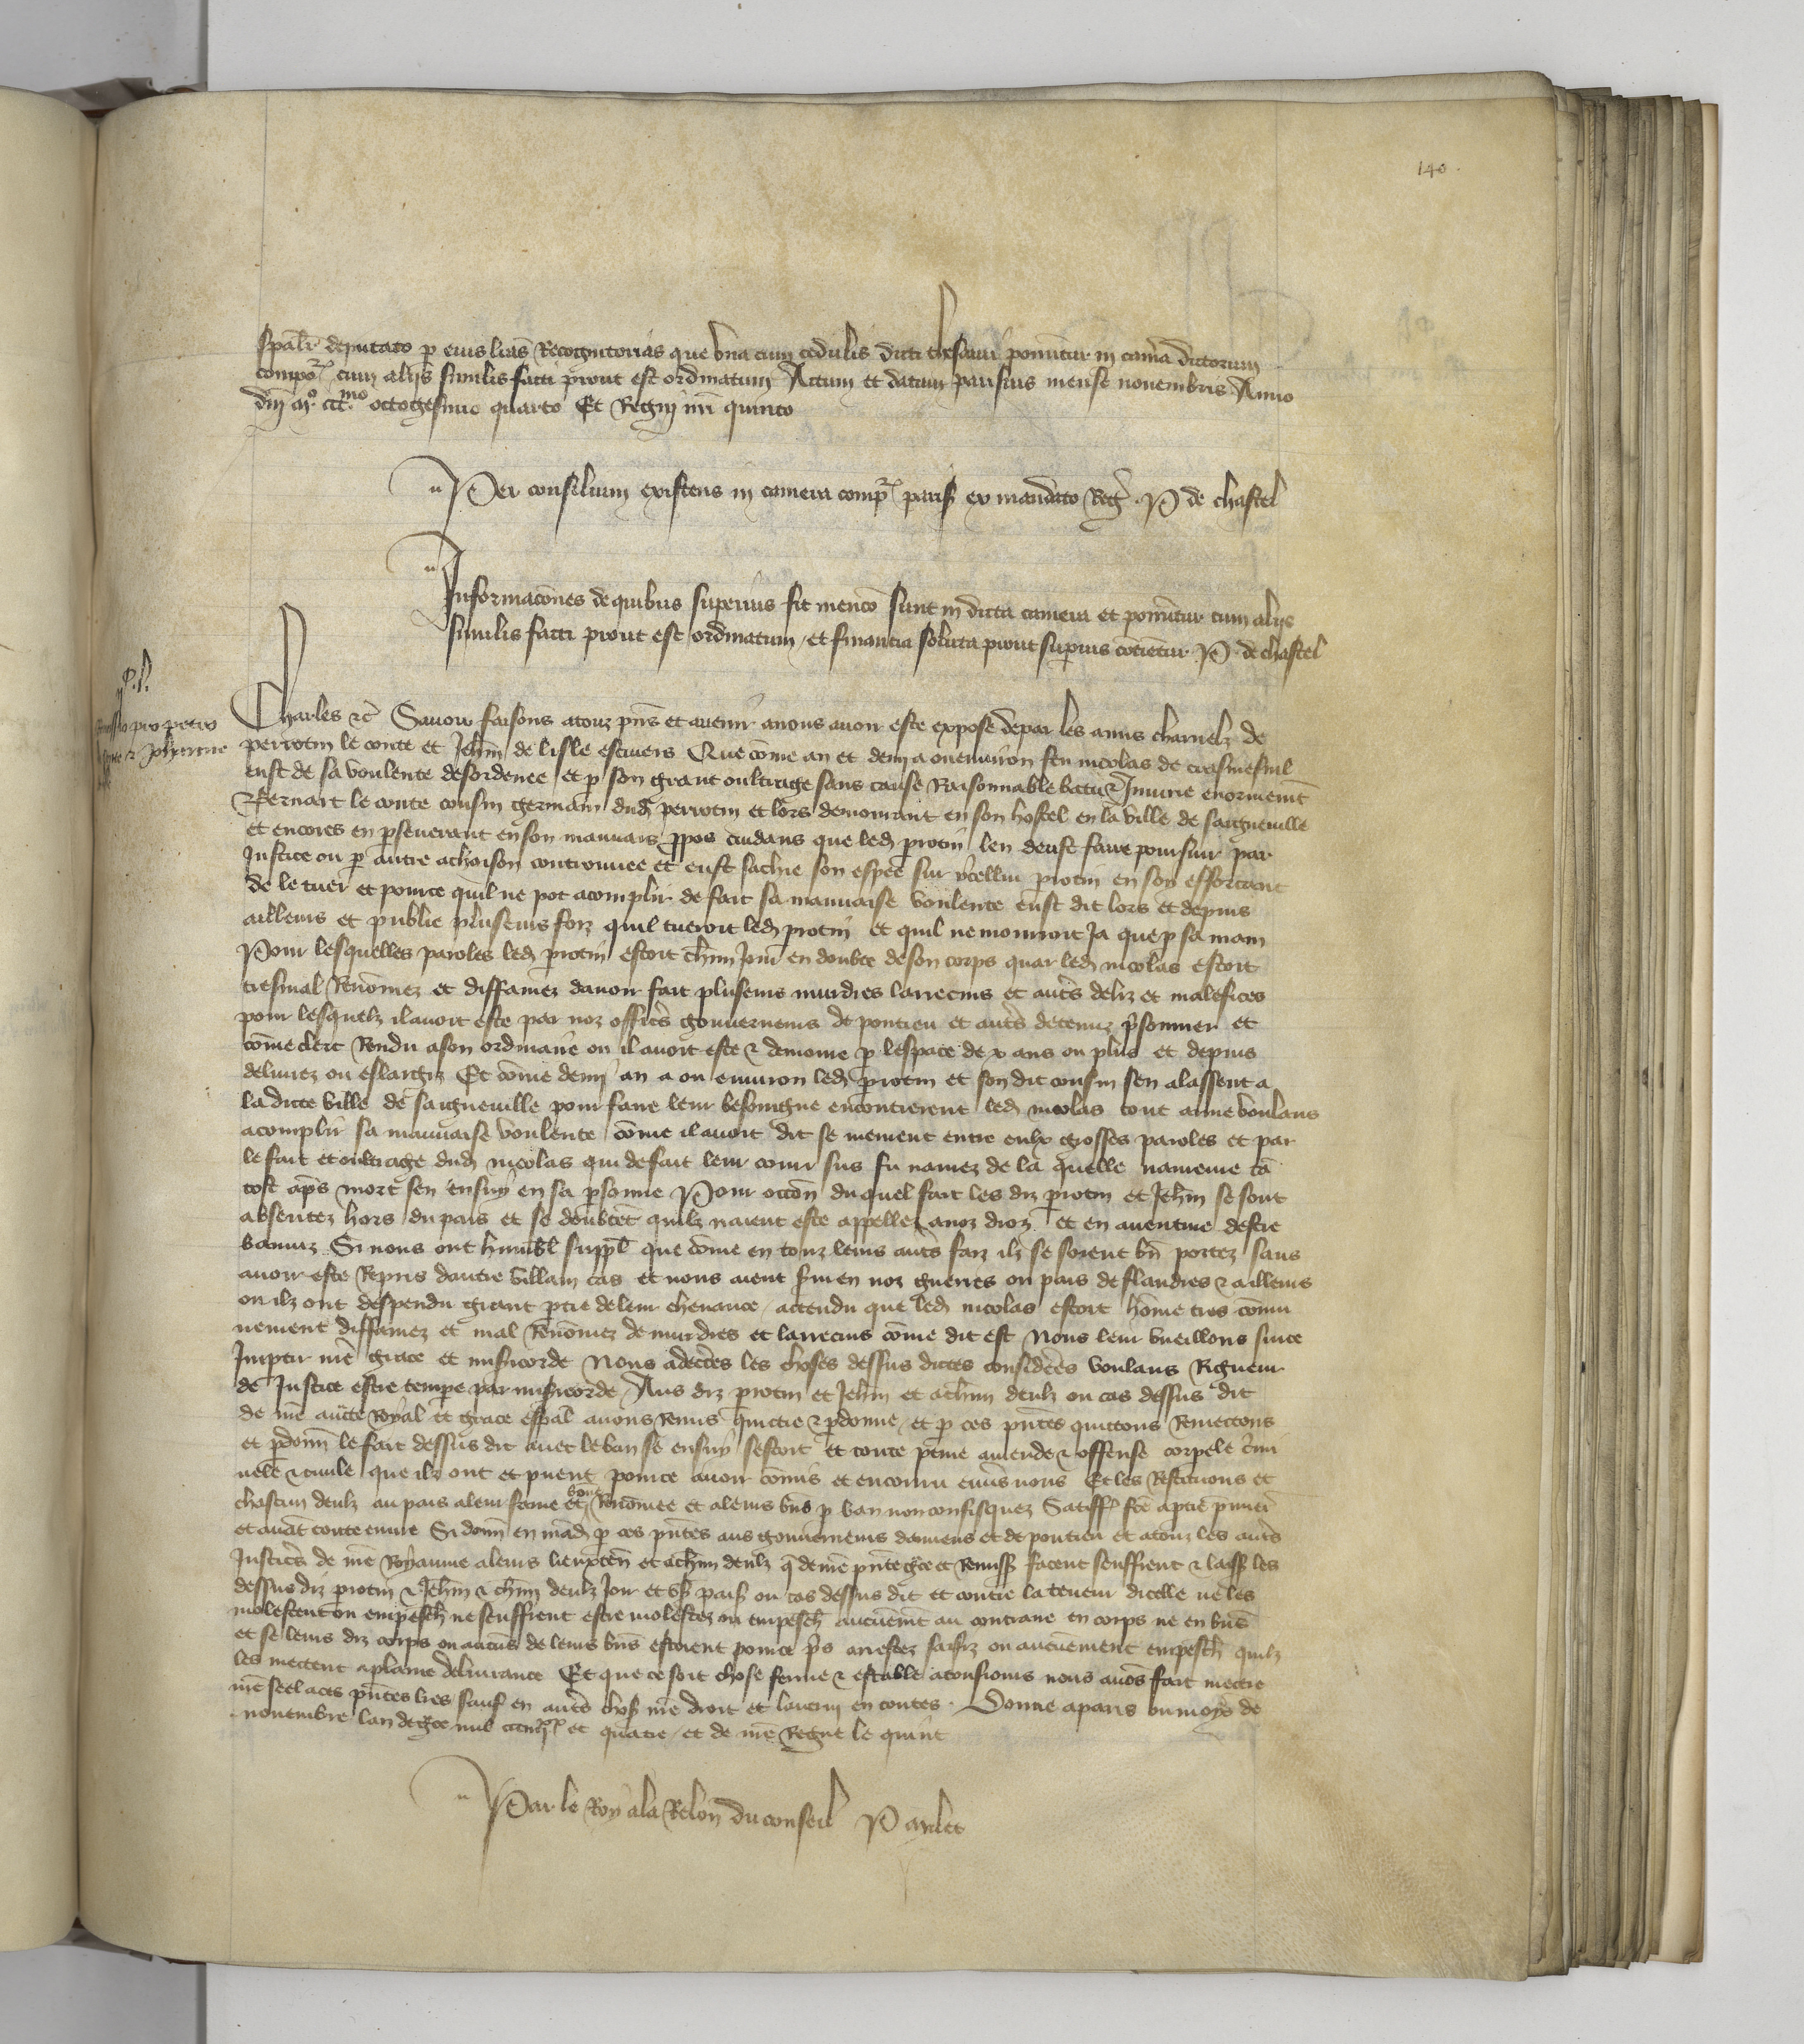 140.
spalr deputato p eius lras Recognitorias que vna cum cedulis dicti thesauri ponuntur in cama dictorum
compor cum alijs similis facti prout est ordinatum Actum et datum parisius mense nouembris Anno
dni mo ccc mo octogesimo quarto Et Regni nri quinto
Per consilium existens in camera compr paris ex mandato Reg. P de chastel
Informacoes de quibus superius fit mencio sunt in dicta camera et ponutur cum alijs
similis facti prout est ordinatum et financia soluta prout superius cotinetur P de chastel
pro petro
Johanne
Charles etc Sauoir faisons a touz pns et auenir a nous auoir este expose de par les amis charnelz de
perrotin le conte et Jehin de lisle escuiers Que come an et demi a ou enuiron feu nicolas de crasmesnil
eust de sa voulente desordenee et p son grant oultrage sans cause Raisonnable batu & Iniurie enormemt
Bernart le conte cousin germain dud perrotin et lors demourant en son hostel en la ville de saigneuille
et encores en perseuerant en son mauuais ppos cuidans que led protin len deust faire poursuir par
Justice ou p autre achoison controuuee et eust sachie son espee sur ycellui protin en soy efforcant
de le tuer et pource quil ne pot acomplir de fait sa mauuaise voulente eust dit lors et depuis
ailleurs et publie pluseurs foiz quil tueroit led protin et quil ne mourroit Ja que p sa main
Pour lesquelles paroles led protin estoit chun Jour en doubte de son corps quar led nicolas estoit
tresmal Renomez et diffamez dauoir fait pluseurs murdres larrecins et autes deliz et malefices
pour lesquelz il auoit este par noz officrs gouuerneurs de pontieu et autes detenuz prisonnier et
come clerc Rendu a son ordinaire ou il auoit este & demoure p lespace de x ans ou plus et depuis
deliurez ou eslargiz Et come demi an a ou enuiron led protin et son dit cousin sen alassent a
la dicte ville de saigneuille pour faire leur besoingne encontrerent led nicolas tout arme voulans
acomplir sa mauuaise voulente come il auoit dit se meuent entre eulx grosses paroles et par
le fait et oultrage dud nicolas qui de fait leur couru sus fu naurez de la quelle naureure ta
tost aps mort sen ensuy en sa psonne Pour occon du quel fait les diz protin et Jehin se sont
absentez hors du pais et se doubtet quilz naient este appellez a noz droiz et en auenture destre
banniz Si nous ont humbl suppl que come en touz leurs autes faiz ilz se soient bn portez sans
auoir este Repris dautre villain cas et nous aient serui en noz guerres ou pais de flandres & ailleurs
ou ilz ont despendu grant ptie de leur cheuance attendu que led nicolas estoit home tres comu
nement diffamez et mal Renomez de murdres et larrecins come dit est Nous leur vueillons sur ce
Impartir nre grace et misicorde Nous adectes les choses dessus dictes considerees voulans Rigueur
de Justice estre tempe par misicorde Aus diz protin et Jehin et a chun deulz ou cas dessus dit
de nre aucte Royal et grace espal auons Remis quictie & pdonne et p ces pntes quittons Remectons
et pdonn le fait dessus dit auec le ban se ensuy sestoit et toute peine amende & offense corpele crimi
nele & ciuile que ilz ont et peuent pource auoir comis et encouru enuers nous Et les Restituons et
chascun deulz au pais a leur feme et bone Renomee et a leurs bns p ban non confisquez Satisff fce a ptie pmier
et auat toute euure Si donn en mad p ces pntes aus gouuerneurs damiens et de pontieu et a touz les autes
Justicrs de nre Royaume a leurs lieuxten et a chun deulz q de nre pnte gce et Remiss facent seuffrent & laiss les
dessus diz protin & Jehin & chun deulz Jouir et vs paisi ou cas dessus dit et contre la teneur dicelle ne les
molestent ou empesch ne seuffrent estre molestez ou empesch aucunemt au contraire en corps ne en bns
et se leurs diz corps ou aucus de leurs bns estoient pource pis arrestez saisiz ou aucunement empesch quilz
les mettent a plaine deliurance Et que ce soit chose ferme & estable a tousiours nous auos fait mectre
nre seel a ces pntes lres sauf en autes chos nre droit et lautrui en toutes . Donne a paris ou moys de
nouembre lan de gce mil cccmxx et quatre et de nre Regne le quint
Par le Roy a la Relon du conseil P arlet